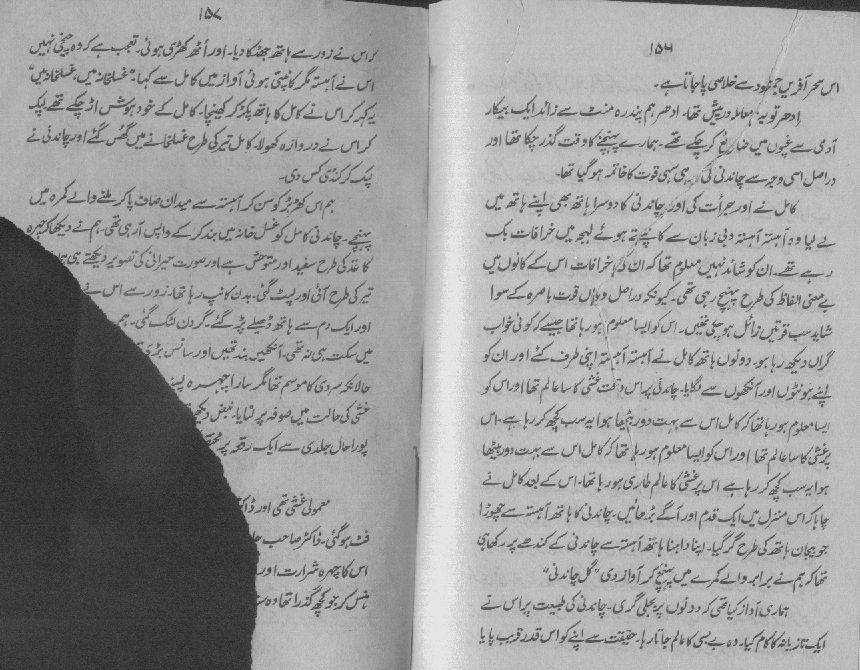 ۱۵۶
اس سحر آفریں جمود سے خلاصی پا جاتا ہے۔
ادھر تو یہ معاملہ درپیش تھا۔ ادھر ہم پندرہ منٹ سے زائد ایک بیکار
آدمی سے غپوں میں ضائع کر چکے تھے۔ ہمارے پہنچنے کا وقت گذر چکا تھا اور
دراصل اسی وجہ سے چاندنی کی رہی سہی قوت کا خاتمہ ہو گیا تھا۔
کامل نے اور جرأت کی اور چاندنی کا دوسرا ہاتھ بھی اپنے ہاتھ میں
لے لیا وہ آہستہ آہستہ دبی زبان سے کانپتے ہوئے لہجہ میں خرافات بک
رہے تھے۔ ان کو شائد نہیں معلوم تھا کہ ان کی خرافات اس کے کانوں میں
بے معنی الفاظ کی طرح پہنچ رہی تھی۔ کیونکہ دراصل وہاں قوت باصرہ کے سوا
شاید سب قوتیں زائل ہو چکی تھیں۔ اس کو ایسا معلوم ہو رہا تھا جیسے کہ کوئی خواب
گراں دیکھ رہا ہو۔ دونوں ہاتھ کامل نے آہستہ آہستہ اپنی طرف کئے اور ان کو
اپنے ہونٹوں اور آنکھوں سے لگایا۔ چاندنی پر اس وقت غشی کا سا عالم تھا اور اس کو
ایسا معلوم ہو رہا تھا کہ کامل اس سے بہت دور بیٹھا ہوا یہ سب کچھ کر رہا ہے۔ اس
پر غشی کا سا عالم تھا اور اس کو ایسا معلوم ہو رہا تھا کہ کامل اس سے بہت دور بیٹھا
ہوا یہ سب کچھ کر رہا ہے اس پر غشی کا عالم طاری ہو رہا تھا۔ اس کے بعد کامل نے
چاہا کہ اس منزل میں ایک قدم اور آگے بڑھائیں۔ چاندنی کا ہاتھ آہستہ سے چھوڑا
جو بیجان ہاتھ کی طرح گر گیا۔ اپنا داہنا ہاتھ آہستہ سے چاندنی کے کندھے پر رکھا ہی
تھا کہ ہم نے برابر والے کمرے میں پہنچ کر آواز دی "گل چاندنی"
ہماری آواز کیا تھی کہ دونوں پر بجلی گری۔ چاندنی کی طبیعت پر اس نے
ایک تازیانہ کا کام کیا۔ وہ بے بسی کا عالم جاتا رہا۔ حقیقت سے اپنے کو اس قدر قریب پایا
۱۵۷
کہ اس نے زور سے ہاتھ جھٹکا دیا۔ اور اُٹھ کھڑی ہوئی۔ تعجب ہے کہ وہ چیخی نہیں
اس نے آہستہ مگر کانپتی ہوئی آواز میں کامل سے کہا۔ "غسلخانہ میں، غسلخانہ میں"
یہ کہہ کر اس نے کامل کا ہاتھ پکڑ کر کھینچا۔ کامل کے خود ہوش اڑ چکے تھے۔ لپک
کر اس نے دروازہ کھولا۔ کامل تیر کی طرح غسلخانے میں گھس گئے اور چاندنی نے
لپک کر کنڈی کس دی۔
ہم اس کھڑبڑ کو سن کر آہستہ سے میدان صاف پا کر ملنے والے کمرہ میں
پہنچے۔ چاندنی کامل کو غسل خانہ میں بند کر کے واپس آ رہی تھی۔ ہم نے دیکھا کہ چہرہ
کاغذ کی طرح سفید اور متوحش ہے اور صورت حیرانی کی تصویر دیکھتے ہی
تیر کی طرح آئی اور لپٹ گئی۔ بدن کانپ رہا تھا۔ زور سے اس نے
اور ایک دم سے ہاتھ ڈھیلے پڑ گئے۔ گردن لٹک گئی۔ ہم
میں سکت ہی نہ تھی۔ آنکھیں بند تھیں اور سانس بڑی
حالانکہ سردی کا موسم تھا مگر سارا چہرہ
غشی کی حالت میں صوفہ پر لٹایا۔ نبض
پورا حال جلدی سے ایک رقعہ پر
معمولی غشی تھی اور
فٹ ہو گئی۔ ڈاکٹر صاحب
اس کا چہرہ شرارت اور
ہنس کر جو کچھ گذرا تھا وہ